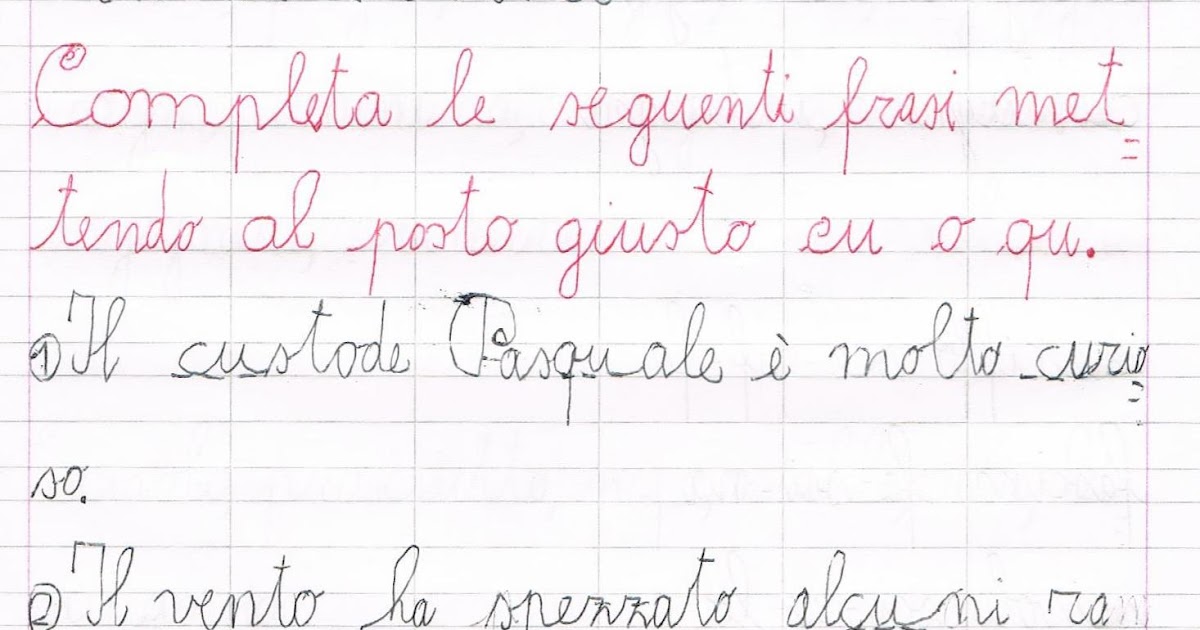 Completa le seguenti frasi met=
tendo al posto giusto cu o qu.
① Il custode Pasquale è molto curio=
so.
② Il vento ha spezzato alcuni ra